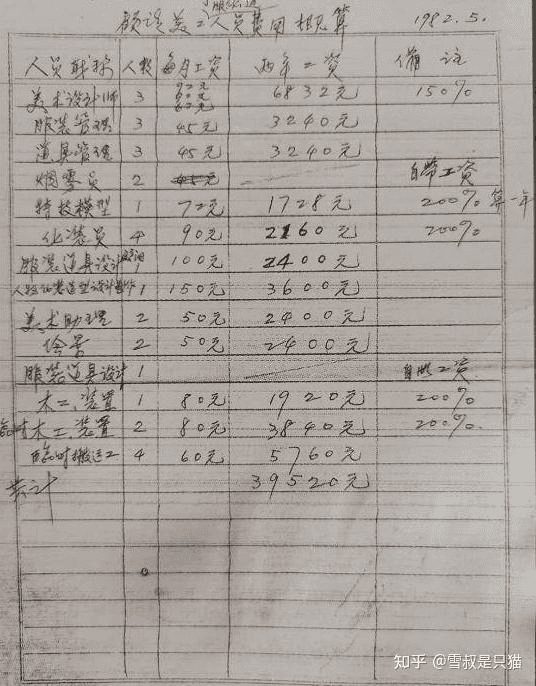 服化道
额该美工人员费用概算 1982.5.
人员职称 人数 每月工资 两年工资 备注
92元
美术设计师 3 60元 6832元 150%
服装管理 3 45元 3240元
道具管理 3 45元 3240元
烟雾员 2 45元 自带工资
特技模型 1 72元 1728元 200% 算一年
化装员 4 90元 2160元 200%
服装道具设计 1 100元 2400元
人物化装造型设计 1 150元 3600元
美术助理 2 50元 2400元
绘景 2 50元 2400元
服装道具设计 1 自带工资
木工、装置 1 80元 1920元 200%
临时木工、装置 2 80元 3840元 200%
临时搬运工 4 60元 5760元
共计 39520元
知乎 @雪叔是只猫